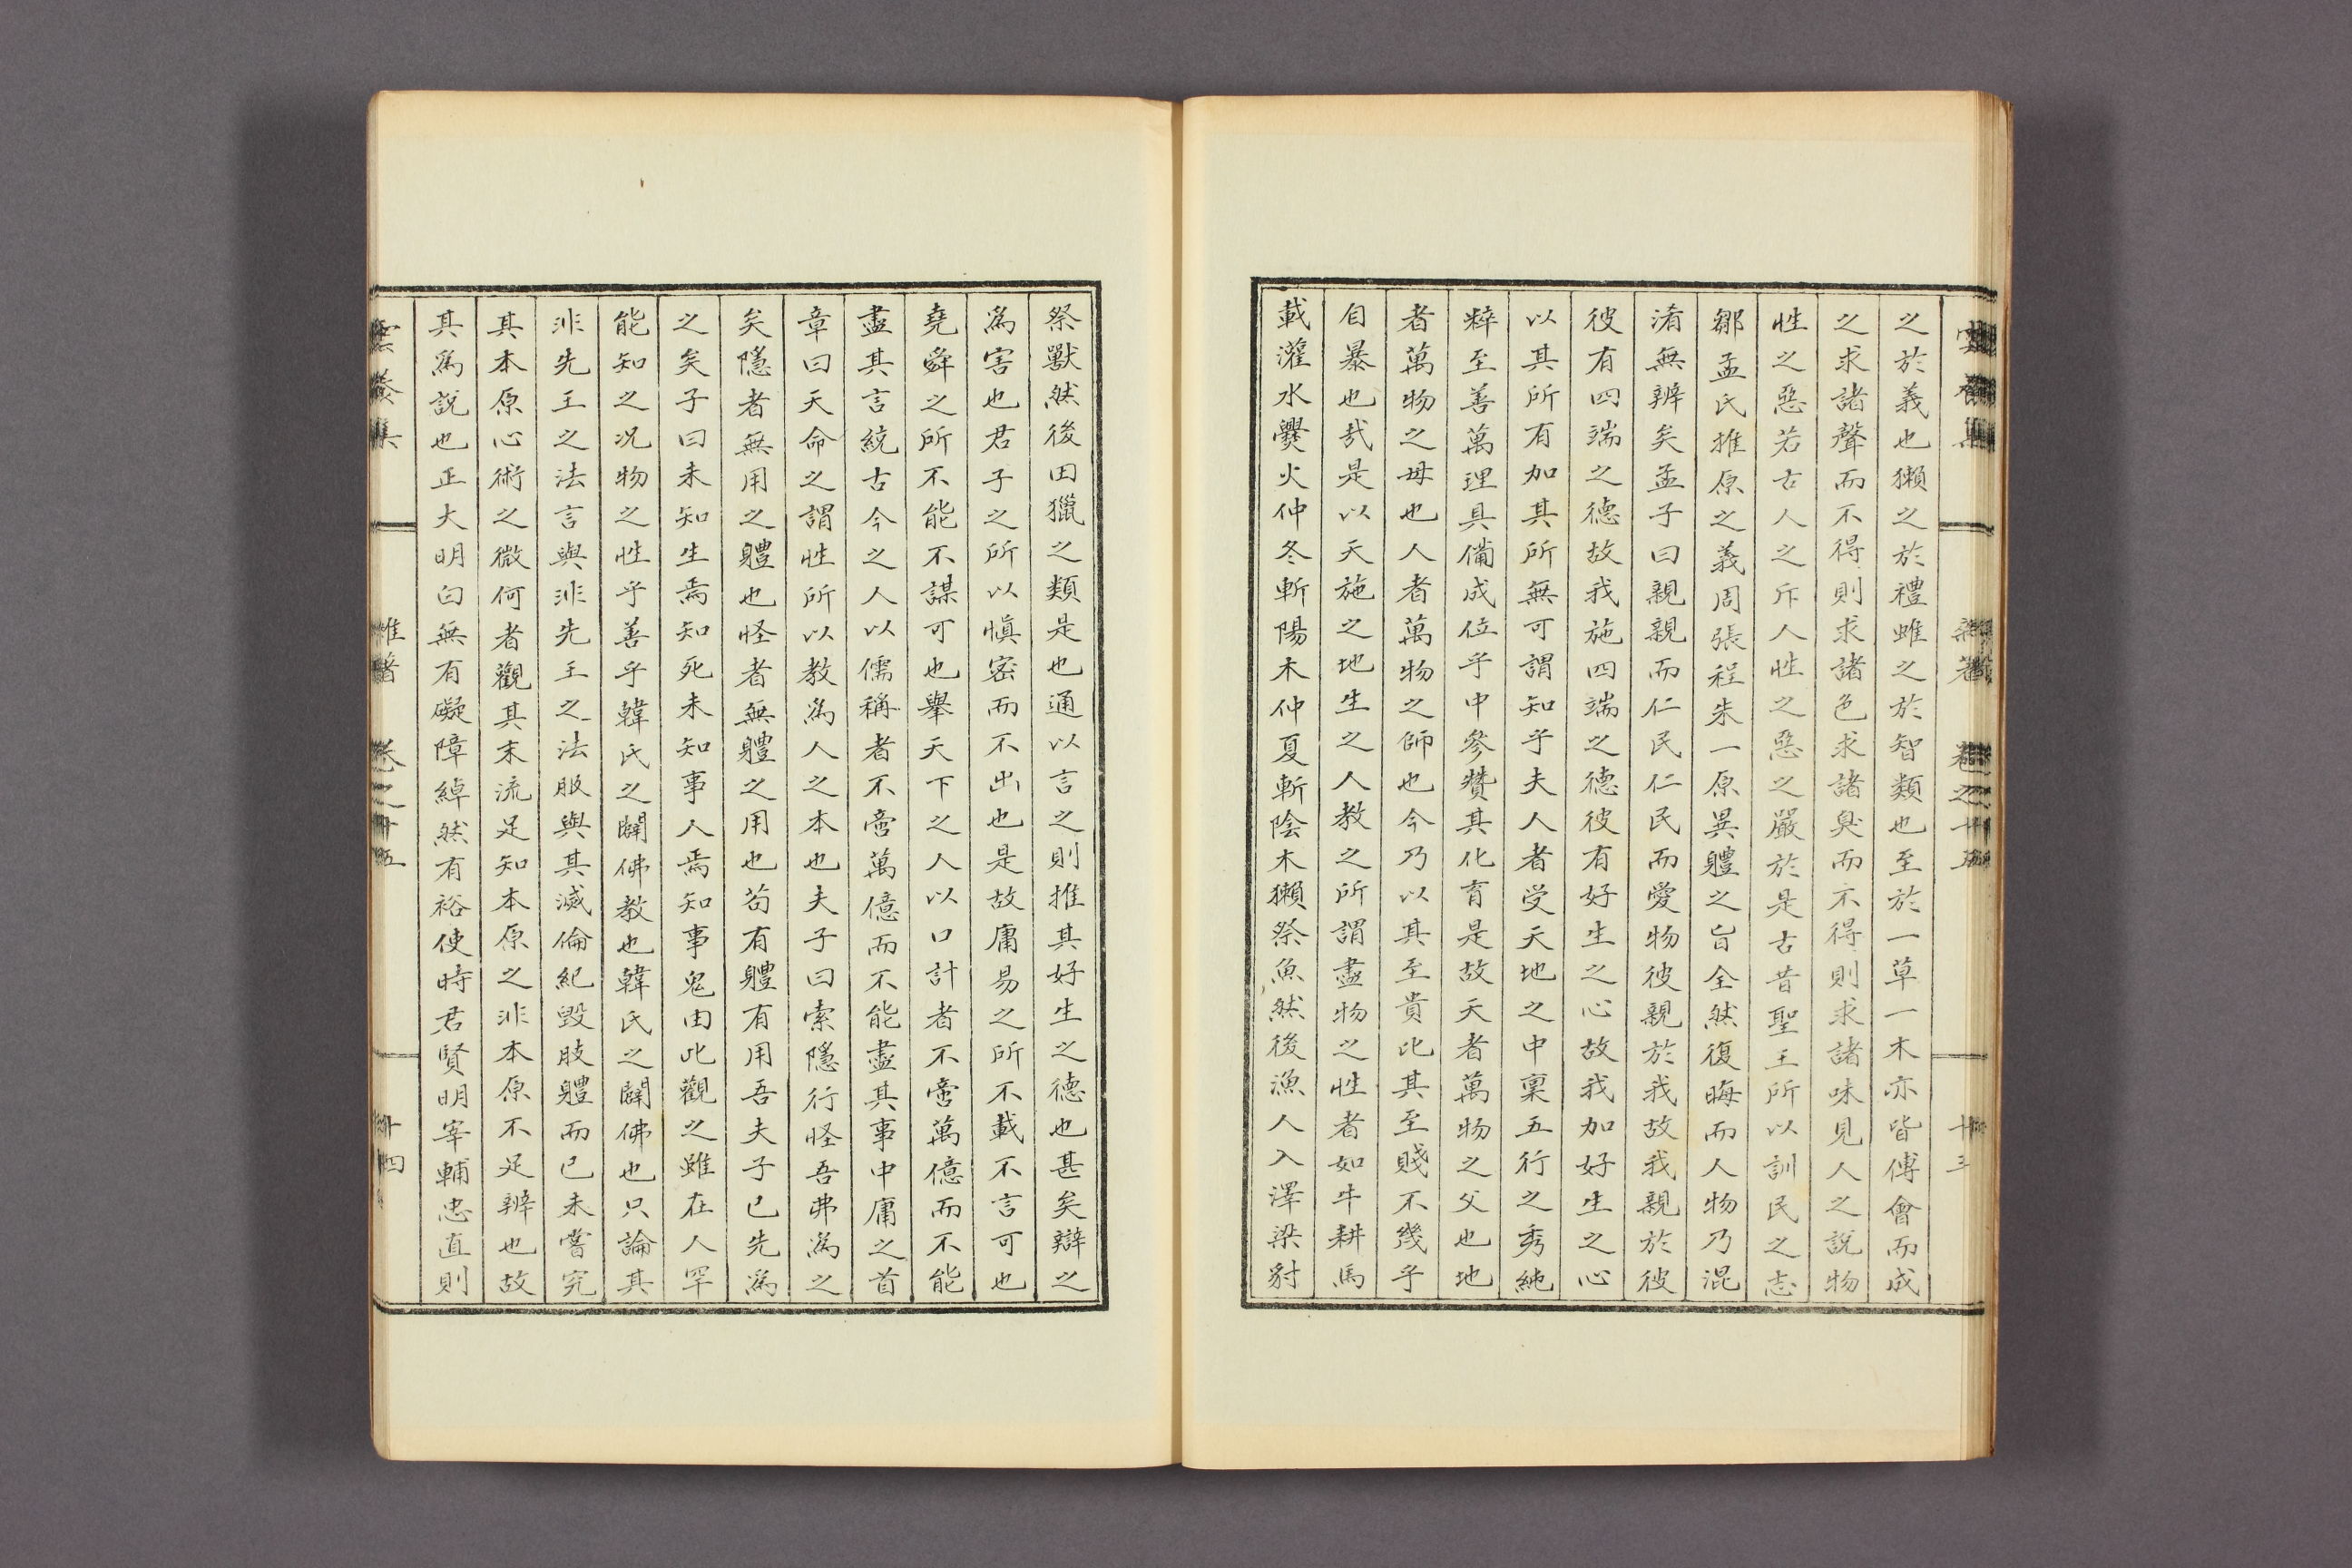 雜著 卷之十五 十三
之於義也獺之於禮雖之於智類也至於一草一木亦皆傅會而成
之求諸聲而不得則求諸色求諸臭而不得則求諸味見人之說物
性之惡若古人之斥人性之惡之嚴於是古昔聖王所以訓民之志
鄒孟氏推原之義周張程朱一原異軆之旨全然復晦而人物乃混
淆無辨矣孟子曰親親而仁民仁民而愛物彼親於我故我親於彼
彼有四端之德故我施四端之德彼有好生之心故我加好生之心
以其所有加其所無可謂知乎夫人者受天地之中稟五行之秀純
粹至善萬理具備成位乎中參贊其化育是故天者萬物之父也地
者萬物之母也人者萬物之師也今乃以其至貴比其至賤不幾乎
自暴也哉是以天施之地生之人教之所謂盡物之性者如牛耕馬
載灌水爨火仲冬斬陽木仲夏斬陰木獺祭魚然後漁人入澤梁豺
祭獸然後田獵之類是也通以言之則推其好生之德也甚矣辯之
爲害也君子之所以愼密而不出也是故庸易之所不載不言可也
堯舜之所不能不謀可也擧天下之人以口計者不啻萬億而不能
盡其言統古今之人以儒稱者不啻萬億而不能盡其事中庸之首
章曰天命之謂性所以教爲人之本也夫子曰索隱行怪吾弗爲之
矣隱者無用之軆也怪者無軆之用也苟有軆有用吾夫子已先爲
之矣子曰未知生焉知死未知事人焉知事鬼由此觀之雖在人罕
能知之况物之性乎善乎韓氏之闢佛教也韓氏之闢佛也只論其
非先王之法言與非先王之法服與其滅倫紀毀肢軆而已未嘗究
其本原心術之微何者觀其末流足知本原之非本原不足辨也故
其爲說也正大明白無有礙障綽然有裕使時君賢明宰輔忠直則
集 雜著 卷之十五 十四